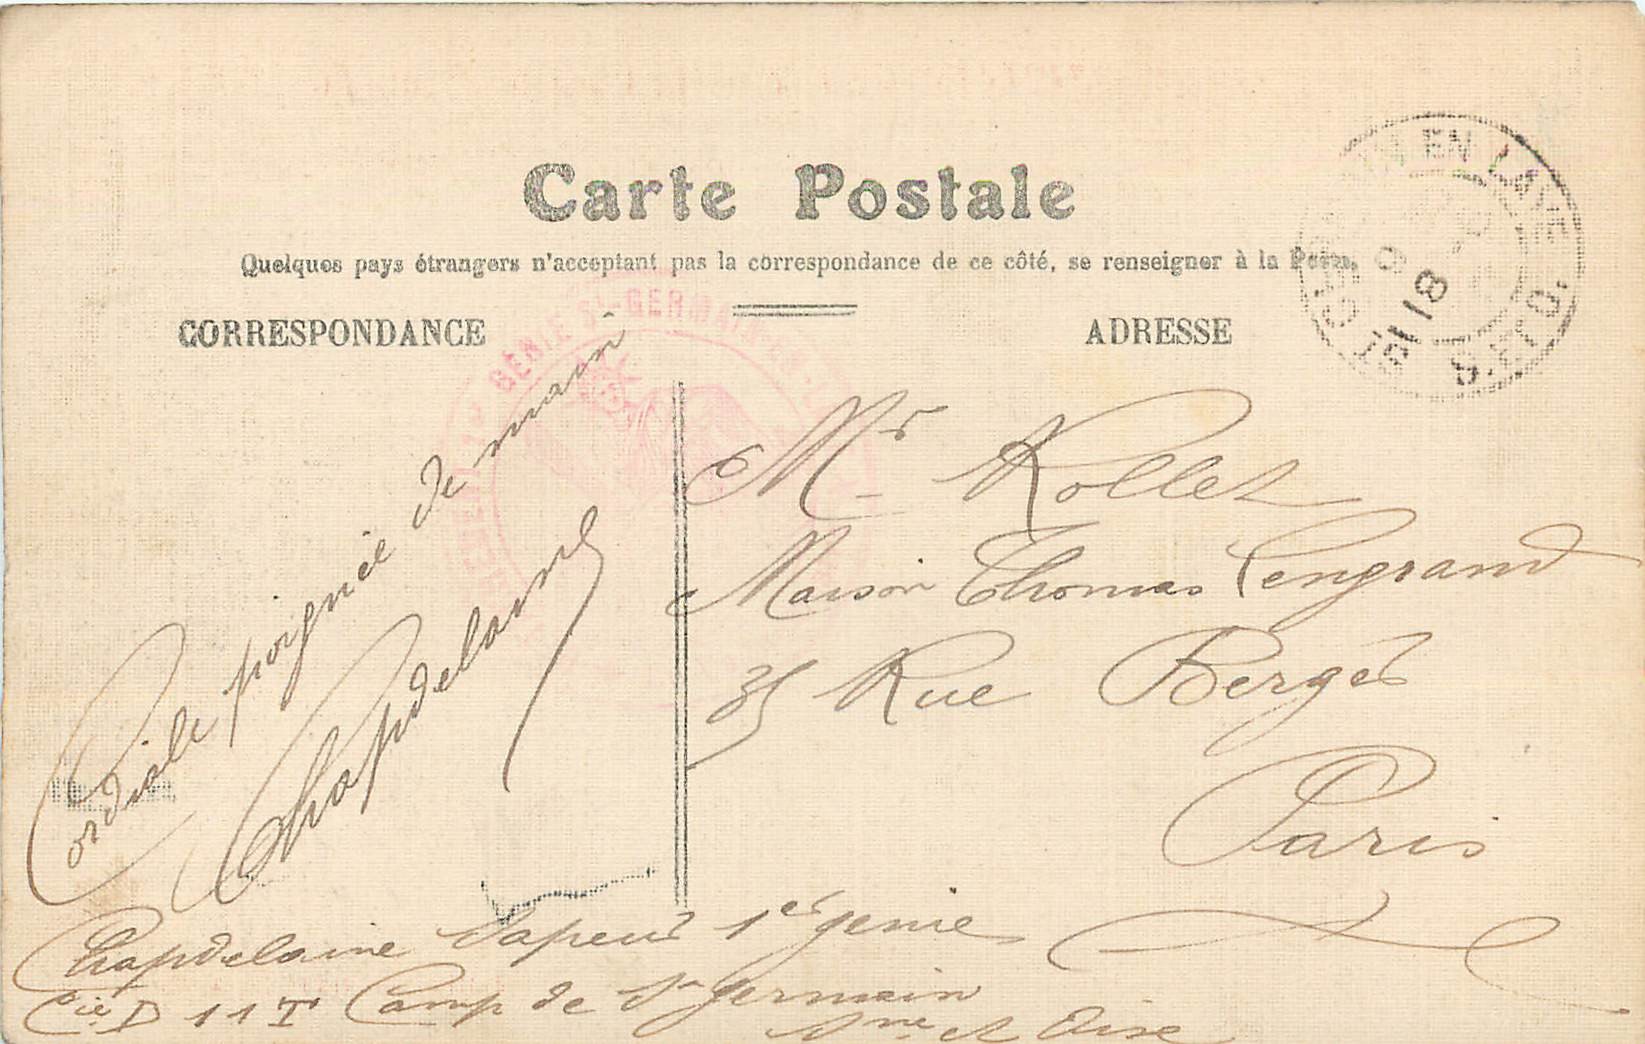 Carte Postale
Quelques pays étrangers n'acceptant pas la correspondance de ce côté, se renseigner à la Poste.
CORRESPONDANCE
ADRESSE
EN LAYE
S.ET O.
18
GÉNIE St-GERMAIN-EN-
Cordiale poignée de main
Chapdelaine
Mr Rollet
Maison Thomas Lengrand
35 Rue Bergès
Paris
Chapdelaine Sapeur 1er genie
Cie D 11 T Camp de St germain
Sne et Oise